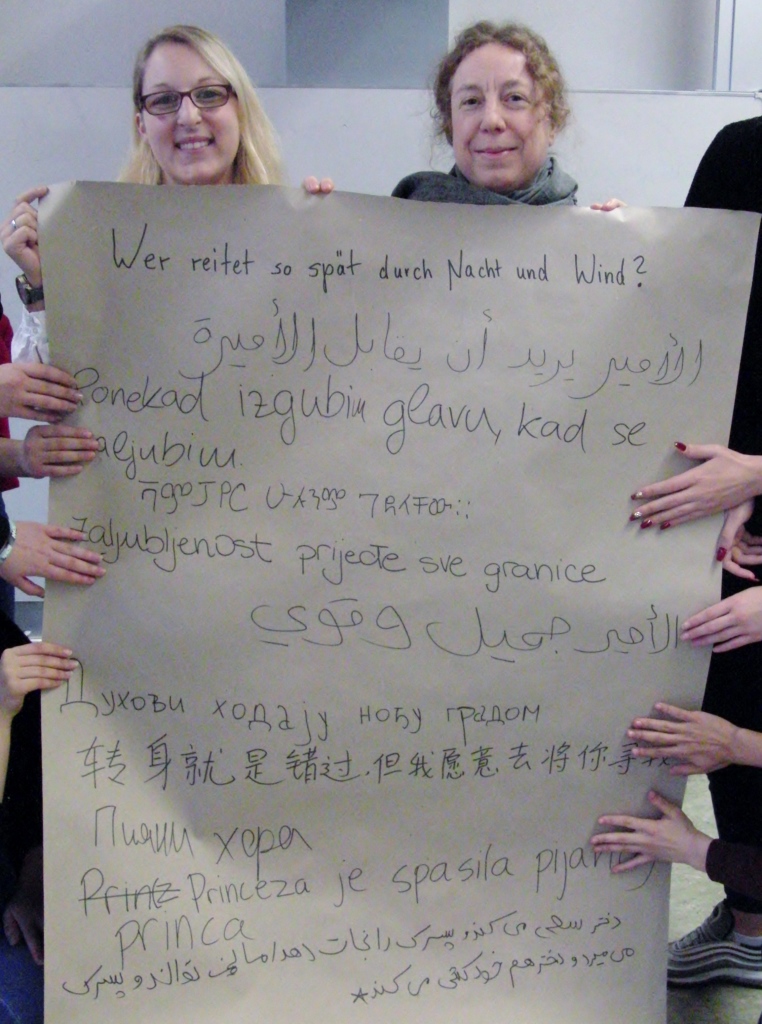 Wer reitet so spät durch Nacht und Wind?
الأمير يريد أن يقابل الأميرة
Ponekad izgubim glavu, kad se
zaljubim.
Zaljubljenost prijeđe sve granice
الأمير جميل وقوي
Духови ходају ноћу градом
转身就是错过.但我愿意去将你寻找
Пияни хора
Printz Princeza je spasila pijanog
princa
دختر سعی می کند و پسرک را نجات دهد اما نمی تواند و پسرک
می میرد و دختر هم خودکشی می کند*